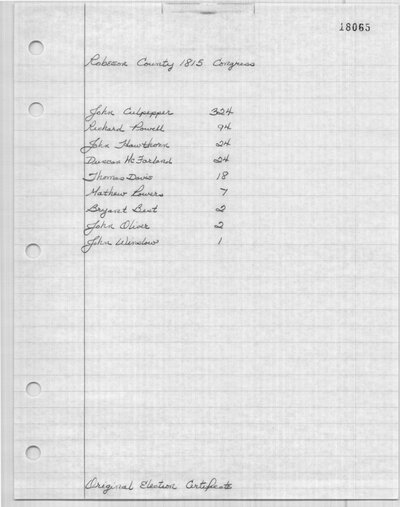 18065
Robeson County 1815 Congress
John Culpepper 324
Richard Powell 94
John Hawthorn 24
Duncan McFarland 24
Thomas Davis 18
Mathew Powers 7
Bryant Best 2
John Oliver 2
John Winslow 1
Original Election Certificate